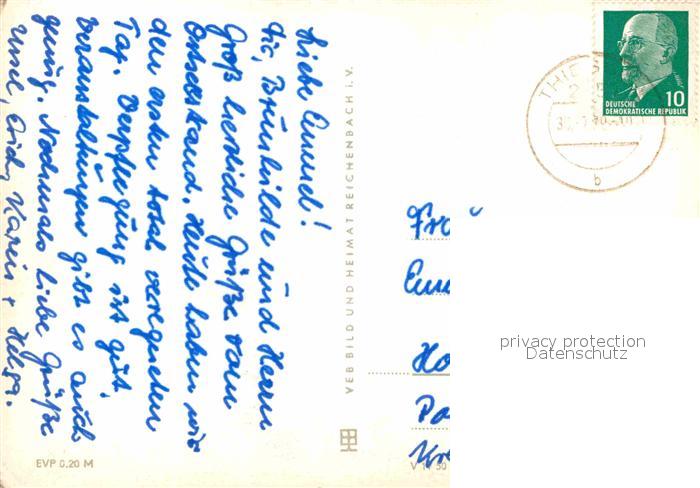 Liebe Emmel!
Dir, Brunhilde und Herrn
Groß herzliche Grüße vom
Ostseestrand. Heute haben wir
den ersten total verregneten
Tag. Verpflegung ist gut.
Veranstaltungen gibt es auch
genug. Nochmals liebe Grüße
Ursel, Erich, Karin + Helga.
VEB BILD UND HEIMAT REICHENBACH i. V.
EVP 0,20 M
V 11 50
DEUTSCHE
DEMOKRATISCHE REPUBLIK
10
THIE
b
Fra
Emm
Ho
privacy protection
Datenschutz